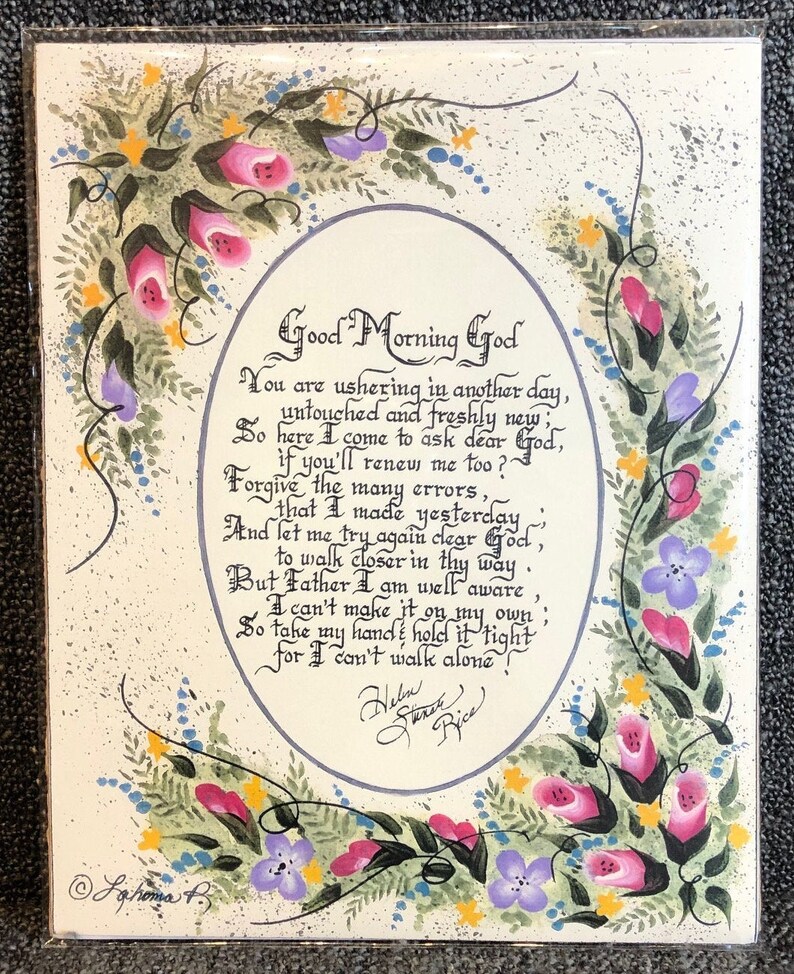 Good Morning God
You are ushering in another day,
untouched and freshly new;
So here I come to ask dear God,
if you'll renew me too?
Forgive the many errors,
that I made yesterday;
And let me try again dear God,
to walk closer in thy way.
But Father I am well aware,
I can't make it on my own;
So take my hand & hold it tight
for I can't walk alone!
Helen
Steiner
Rice
© Lahoma R